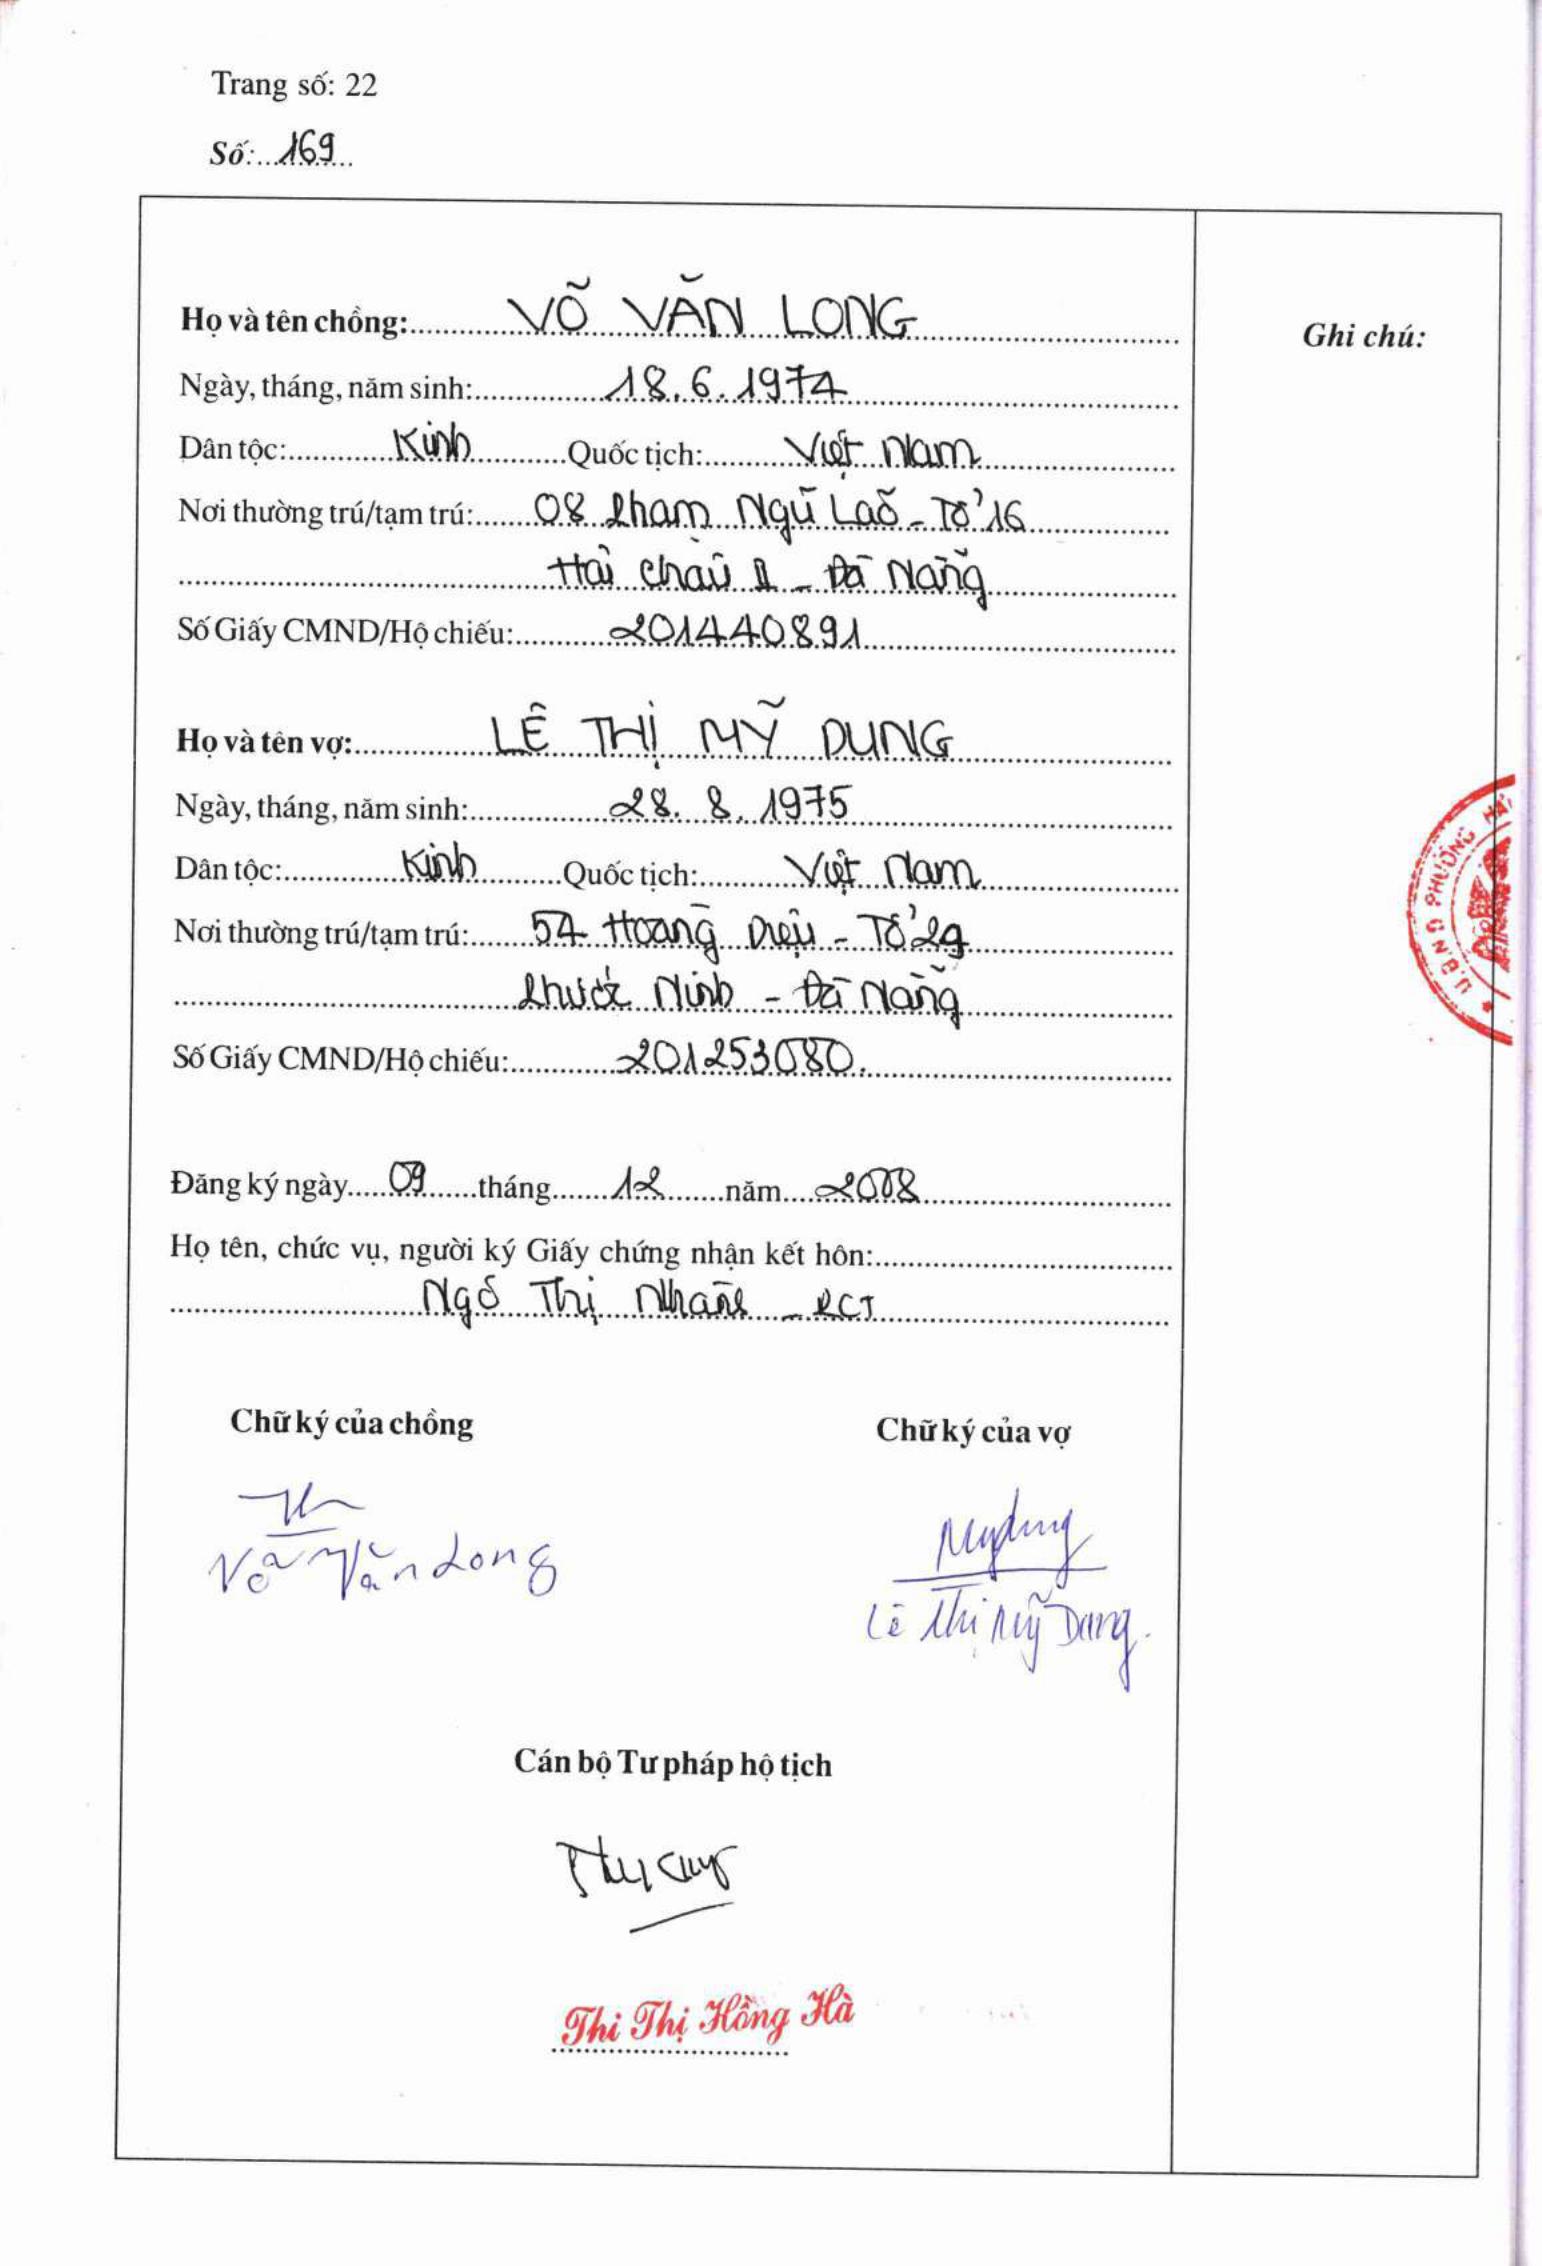 Trang số: 22
Số: 169
Họ và tên chồng: VÕ VĂN LONG
Ghi chú:
Ngày, tháng, năm sinh: 18.6.1974
Dân tộc: Kinh Quốc tịch: Việt Nam
Nơi thường trú/tạm trú: 08 Phạm Ngũ Lão - Tổ 16
Hải Châu II - Đà Nẵng
Số Giấy CMND/Hộ chiếu: 201440891
Họ và tên vợ: LÊ THỊ MỸ DUNG
Ngày, tháng, năm sinh: 28.8.1975
Dân tộc: Kinh Quốc tịch: Việt Nam
Nơi thường trú/tạm trú: 54 Hoàng Diệu - Tổ 29
Phước Ninh - Đà Nẵng
Số Giấy CMND/Hộ chiếu: 201253080.
U.B.N.D PHƯỜNG
Đăng ký ngày 09 tháng 12 năm 2008
Họ tên, chức vụ, người ký Giấy chứng nhận kết hôn:
Ngô Thị Nhàn - PCT
Chữ ký của chồng
Chữ ký của vợ
Võ Văn Long
Mydung
Lê Thị Mỹ Dung.
Cán bộ Tư pháp hộ tịch
Thi Thị Hồng Hà